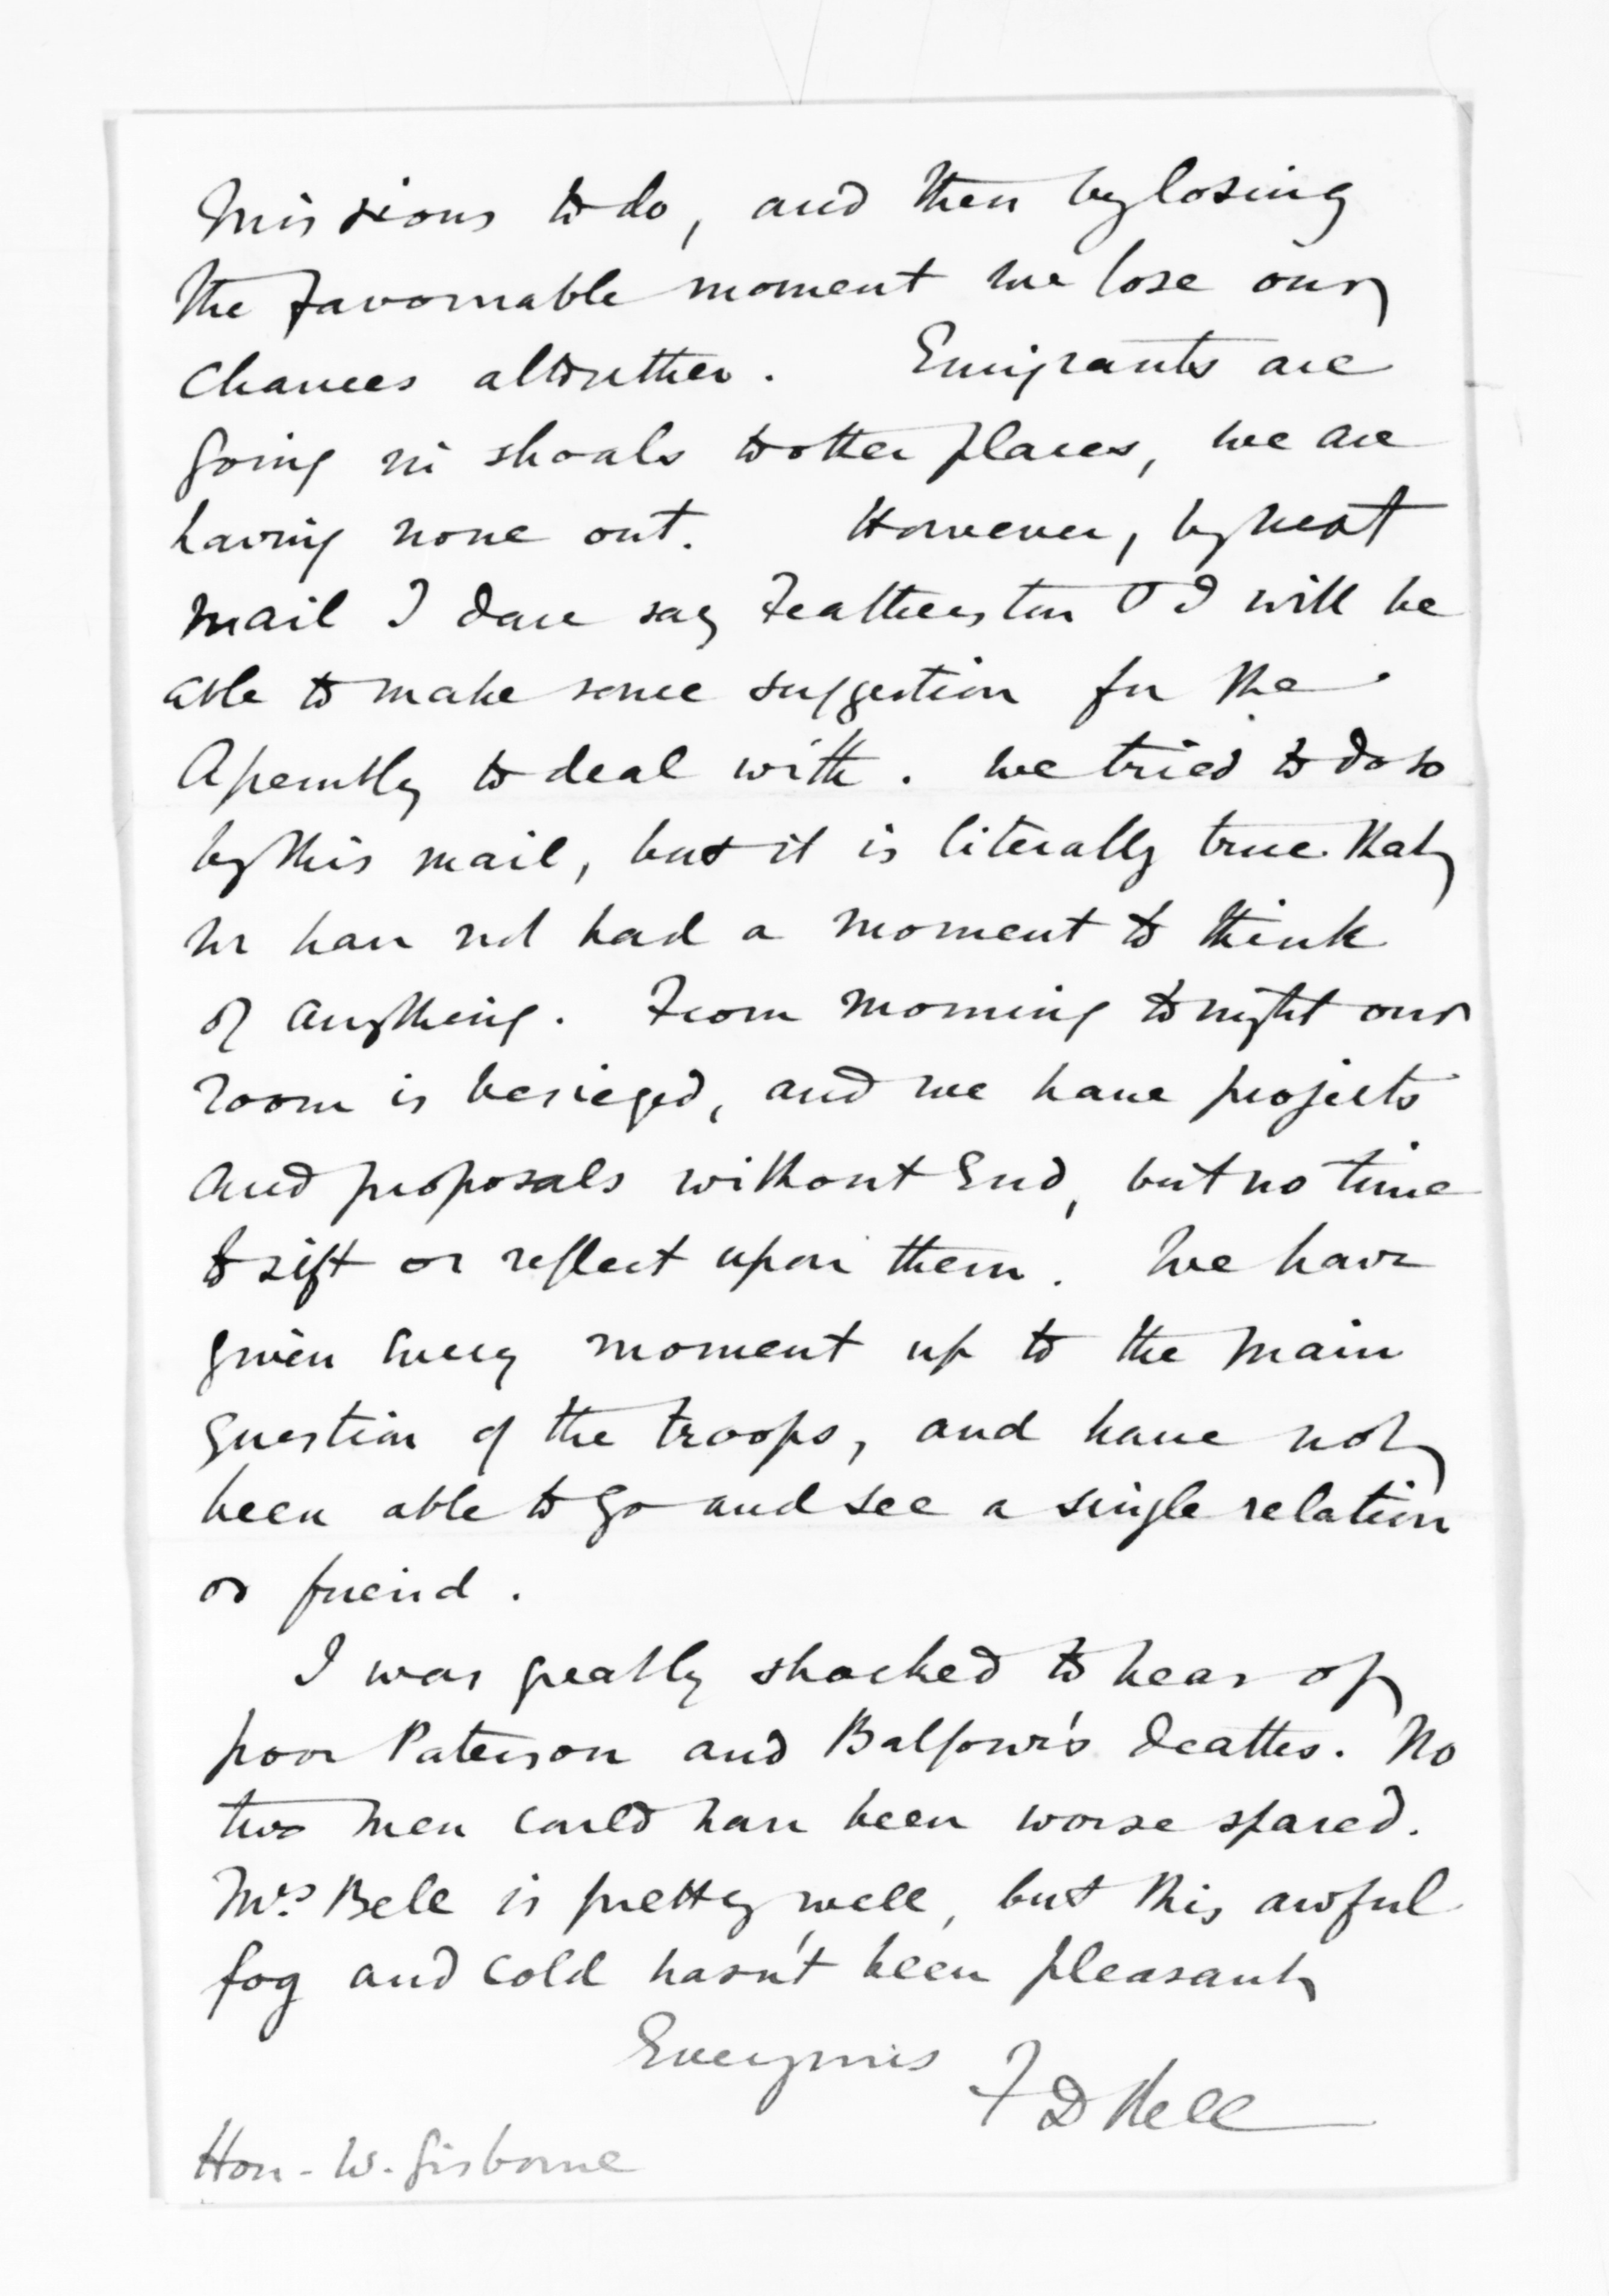 missions to do, and then by losing
the favourable moment we lose our
chances altogether. Emigrants are
going in shoals to other places, we are
having none out. However, by next
mail I dare say Featherston & I will be
able to make some suggestion for the
Assembly to deal with. We tried to do so
by this mail, but it is literally true that
we have not had a moment to think
of anything. From morning to night our
room is besieged, and we have projects
and proposals without end, but no time
to sift or reflect upon them. We have
given every moment up to the main
question of the troops, and have not
been able to go and see a single relation
or friend.
I was greatly shocked to hear of
poor Paterson and Balfour's deaths. No
two men could have been worse spared.
Mrs. Bell is pretty well, but this awful
fog and cold hasn't been pleasant
Ever yours F D Bell
Hon. W. Gisborne